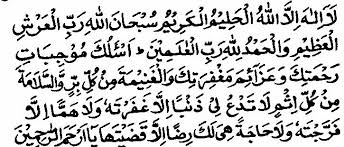 لَا اِلٰهَ اِلَّا اللهُ الْحَلِيْمُ الْكَرِيْمُ سُبْحَانَ اللهِ رَبِّ الْعَرْشِ
الْعَظِيْمِ وَالْحَمْدُ لِلهِ رَبِّ الْعٰلَمِيْنَ ط اَسْئَلُكَ مُوْجِبَاتِ
رَحْمَتِكَ وَعَزَآئِمَ مَغْفِرَتِكَ وَالْغَنِيْمَةَ مِنْ كُلِّ بِرٍّ وَّالسَّلَامَةَ
مِنْ كُلِّ اِثْمٍ لَا تَدَعْ لِيْ ذَنْبًا اِلَّا غَفَرْتَهٗ وَلَا هَمًّا اِلَّا
فَرَّجْتَهٗ وَلَا حَاجَةً هِيَ لَكَ رِضًا اِلَّا قَضَيْتَهَا يَا اَرْحَمَ الرّٰحِمِيْنَ